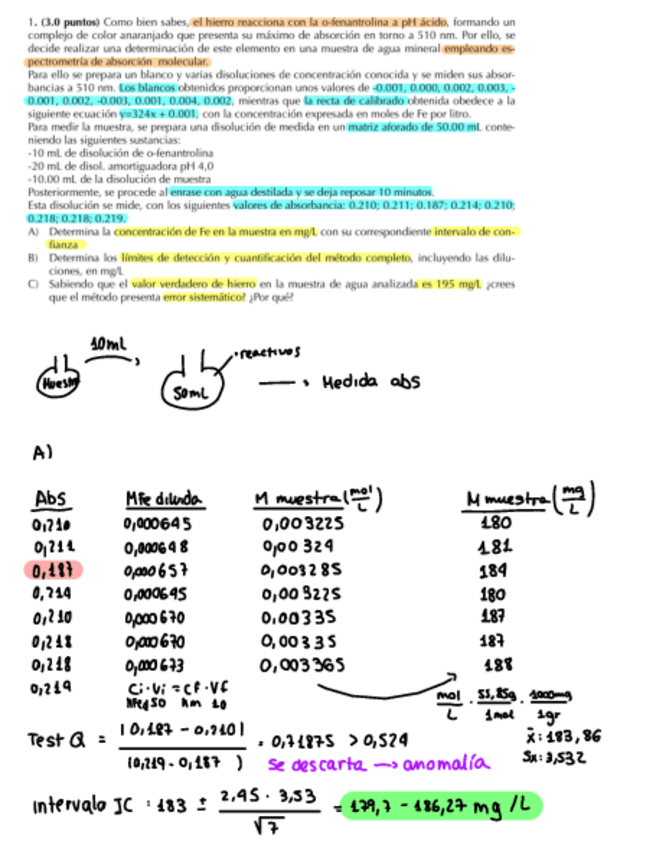 1. (3.0 puntos) Como bien sabes, el hierro reacciona con la o-fenantrolina a pH ácido, formando un
complejo de color anaranjado que presenta su máximo de absorción en torno a 510 nm. Por ello, se
decide realizar una determinación de este elemento en una muestra de agua mineral empleando es-
pectrometría de absorción molecular.
Para ello se prepara un blanco y varias disoluciones de concentración conocida y se miden sus absor-
bancias a 510 nm. Los blancos obtenidos proporcionan unos valores de -0.001, 0.000, 0.002, 0.003, -
0.001, 0.002, -0.003, 0.001, 0.004, 0.002, mientras que la recta de calibrado obtenida obedece a la
siguiente ecuación y=324x + 0.001, con la concentración expresada en moles de Fe por litro.
Para medir la muestra, se prepara una disolución de medida en un matriz aforado de 50.00 mL conte-
niendo las siguientes sustancias:
-10 mL de disolución de o-fenantrolina
-20 mL de disol. amortiguadora pH 4,0
-10.00 mL de la disolución de muestra
Posteriormente, se procede al enrase con agua destilada y se deja reposar 10 minutos.
Esta disolución se mide, con los siguientes valores de absorbancia: 0.210; 0.211; 0.187; 0.214; 0.210;
0.218; 0.218; 0.219.
A) Determina la concentración de Fe en la muestra en mg/L con su correspondiente intervalo de con-
fianza
B) Determina los límites de detección y cuantificación del método completo, incluyendo las dilu-
ciones, en mg/L
C) Sabiendo que el valor verdadero de hierro en la muestra de agua analizada es 195 mg/L ¿crees
que el método presenta error sistemático? ¿Por qué?
10mL
Muestra
50mL
• reactivos
Medida abs
A)
Abs MFe diluida M muestra (mol/L) M muestra (mg/L)
0,210 0,000645 0,003225 180
0,211 0,000648 0,00324 181
0,187 0,000657 0,003285 184
0,214 0,000645 0,003225 180
0,210 0,000670 0,00335 187
0,218 0,000670 0,00335 187
0,218 0,000673 0,003365 188
0,219 Ci·Vi = CF·VF
mol/L · 55,85g/1mol · 1000mg/1gr
Test Q = |0,187 - 0,210| / (0,219 - 0,187) = 0,71875 > 0,524
x̄: 183,86
Sx: 3,532
Se descarta → anomalía
Intervalo IC: 183 ± 2,45 · 3,53 / √7 = 179,7 - 186,27 mg/L